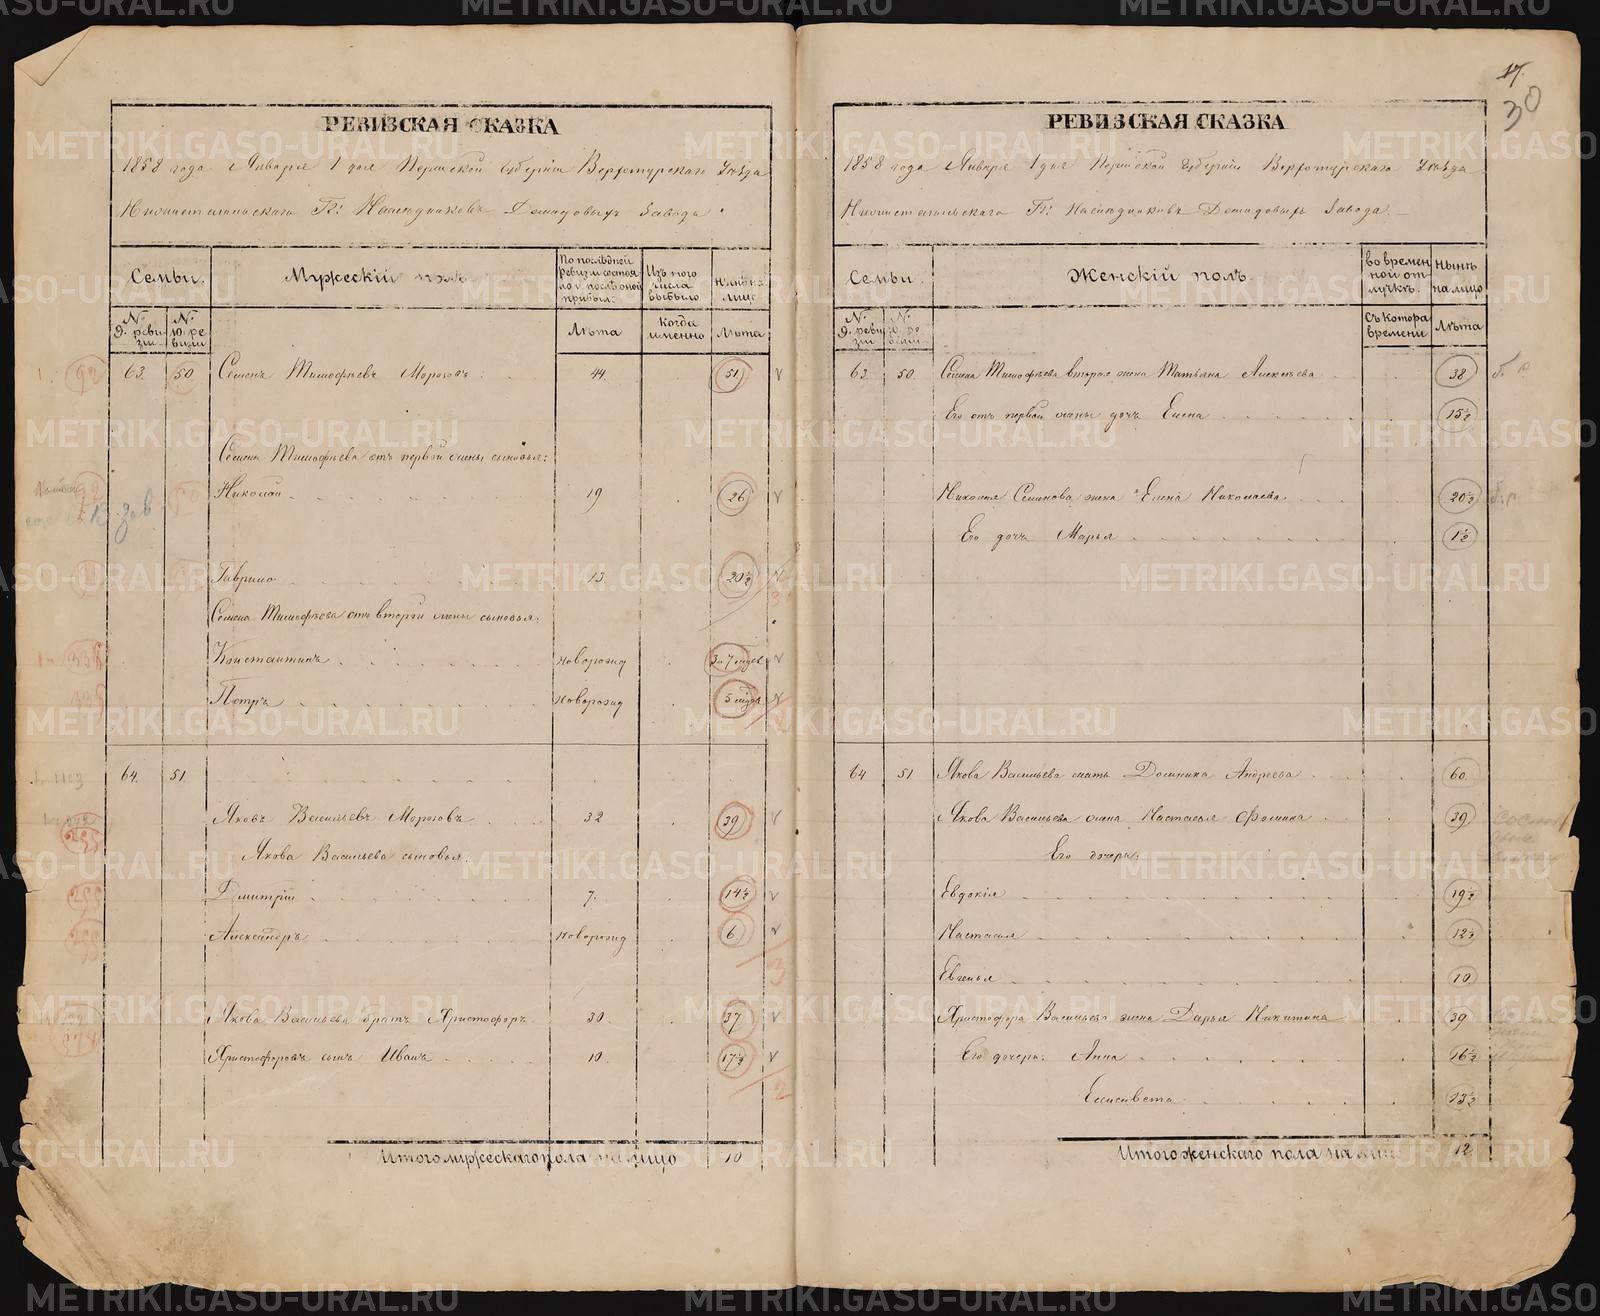 17.
30
РЕВИЗСКАЯ СКАЗКА
1858 года Января 1 дня Пермской Губерніи Верхотурскаго Уѣзда
Нижнетагильскаго Гг: Наслѣдниковъ Демидовыхъ Завода.
Семьи. Мужескій полъ. По послѣдной ревизіи состояло и послѣ оной прибыло: Изъ того числа выбыло Нынѣ на лицо
№ 9. ревизіи № 10 ревизіи Лѣта Когда именно Лѣта
63. 50. Семенъ Тимофѣевъ Морозовъ 44. 51
Семена Тимофѣева отъ первой жены сыновья:
Николай 19 26
зав
Гаврило 13. 20½
Семена Тимофѣева отъ второй жены сыновья:
Константинъ новорожд 3 и 7 мцов
Петръ новорожд 5 мцов
64. 51.
Яковъ Васильевъ Морозовъ 32 39
Якова Васильева сыновья:
Дмитрій 7. 14½
Александръ новорожд 6
3
Якова Васильева братъ Христофоръ 30. 37
Христофоровъ сынъ Иванъ 10. 17½
2
Итого мужескаго пола на лицо 10
РЕВИЗСКАЯ СКАЗКА
1858 года Января 1 дня Пермской Губерніи Верхотурскаго Уѣзда
Нижнетагильскаго Гг: Наслѣдниковъ Демидовыхъ Завода.
Семьи. Женскій полъ. Во временной отлучкѣ. Нынѣ на лицо
№ 9. ревизіи № 10 ревизіи Съ котора времени Лѣта
63. 50. Семена Тимофѣева вторая жена Татьяна Алексѣева 38
Его отъ первой жены дочь Елена 15½
Николая Семенова жена Елена Николаева 20½
Его дочь Марья 1½
64 51 Якова Васильева мать Домника Андреева 60.
Якова Васильева жена Настасья Фомина 39
Его дочери:
Евдокія 19½
Настасья 12½
Евгенья 10
Христофора Васильева жена Дарья Никитина 39
Его дочери: Анна 16½
Елисавета 13½
Итого женскаго пола на лицо 12
METRIKI.GASO-URAL.RU